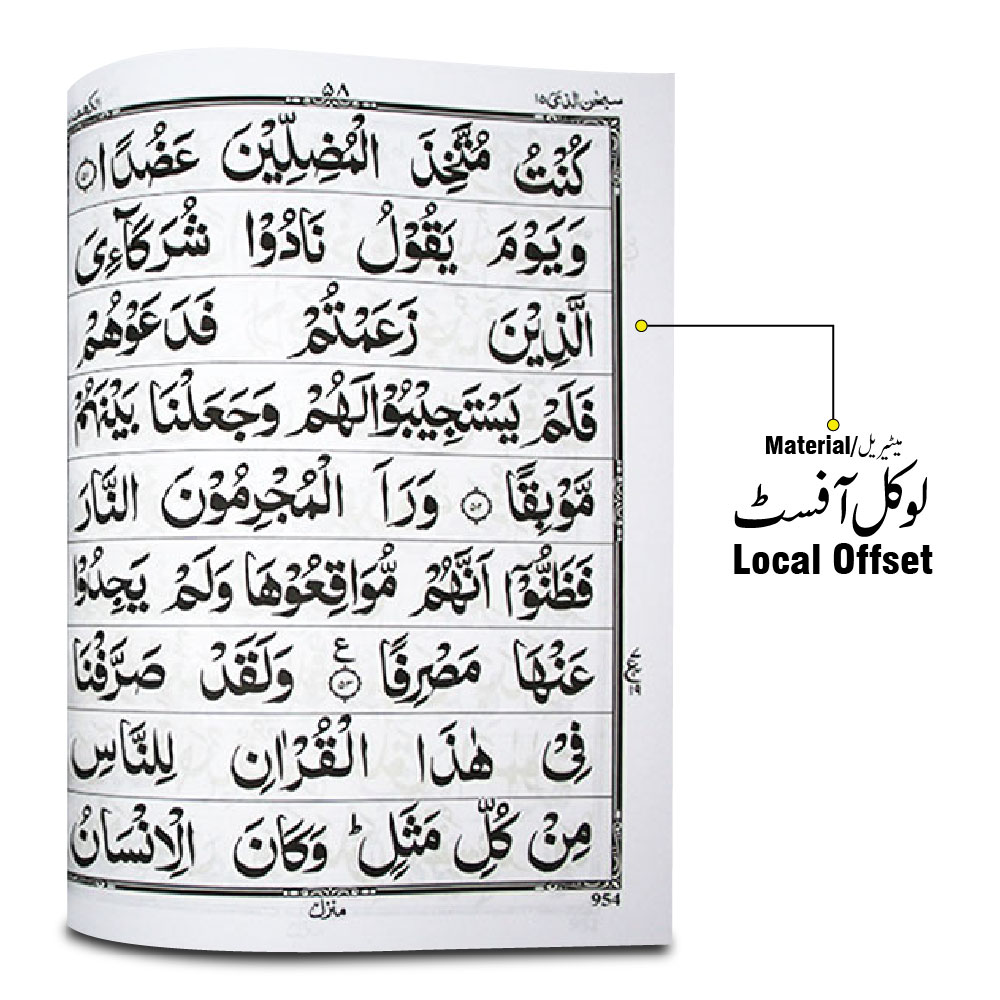 سبحٰن الذی ۱۵
۵۸
الکهف
كُنْتُ مُتَّخِذَ الْمُضِلِّيْنَ عَضُدًا ۵۱
وَيَوْمَ يَقُوْلُ نَادُوْا شُرَكَآءِىَ
الَّذِيْنَ زَعَمْتُمْ فَدَعَوْهُمْ
فَلَمْ يَسْتَجِيْبُوْا لَهُمْ وَجَعَلْنَا بَيْنَهُمْ
مَّوْبِقًا ۵۲ وَرَاَ الْمُجْرِمُوْنَ النَّارَ
فَظَنُّوْۤا اَنَّهُمْ مُّوَاقِعُوْهَا وَلَمْ يَجِدُوْا
عَنْهَا مَصْرِفًا ۵۳ ع وَلَقَدْ صَرَّفْنَا
فِىْ هٰذَا الْقُرْاٰنِ لِلنَّاسِ
مِنْ كُلِّ مَثَلٍ ؕ وَكَانَ الْاِنْسَانُ
منزل
954
Material/میٹیریل
لوکل آفسٹ
Local Offset